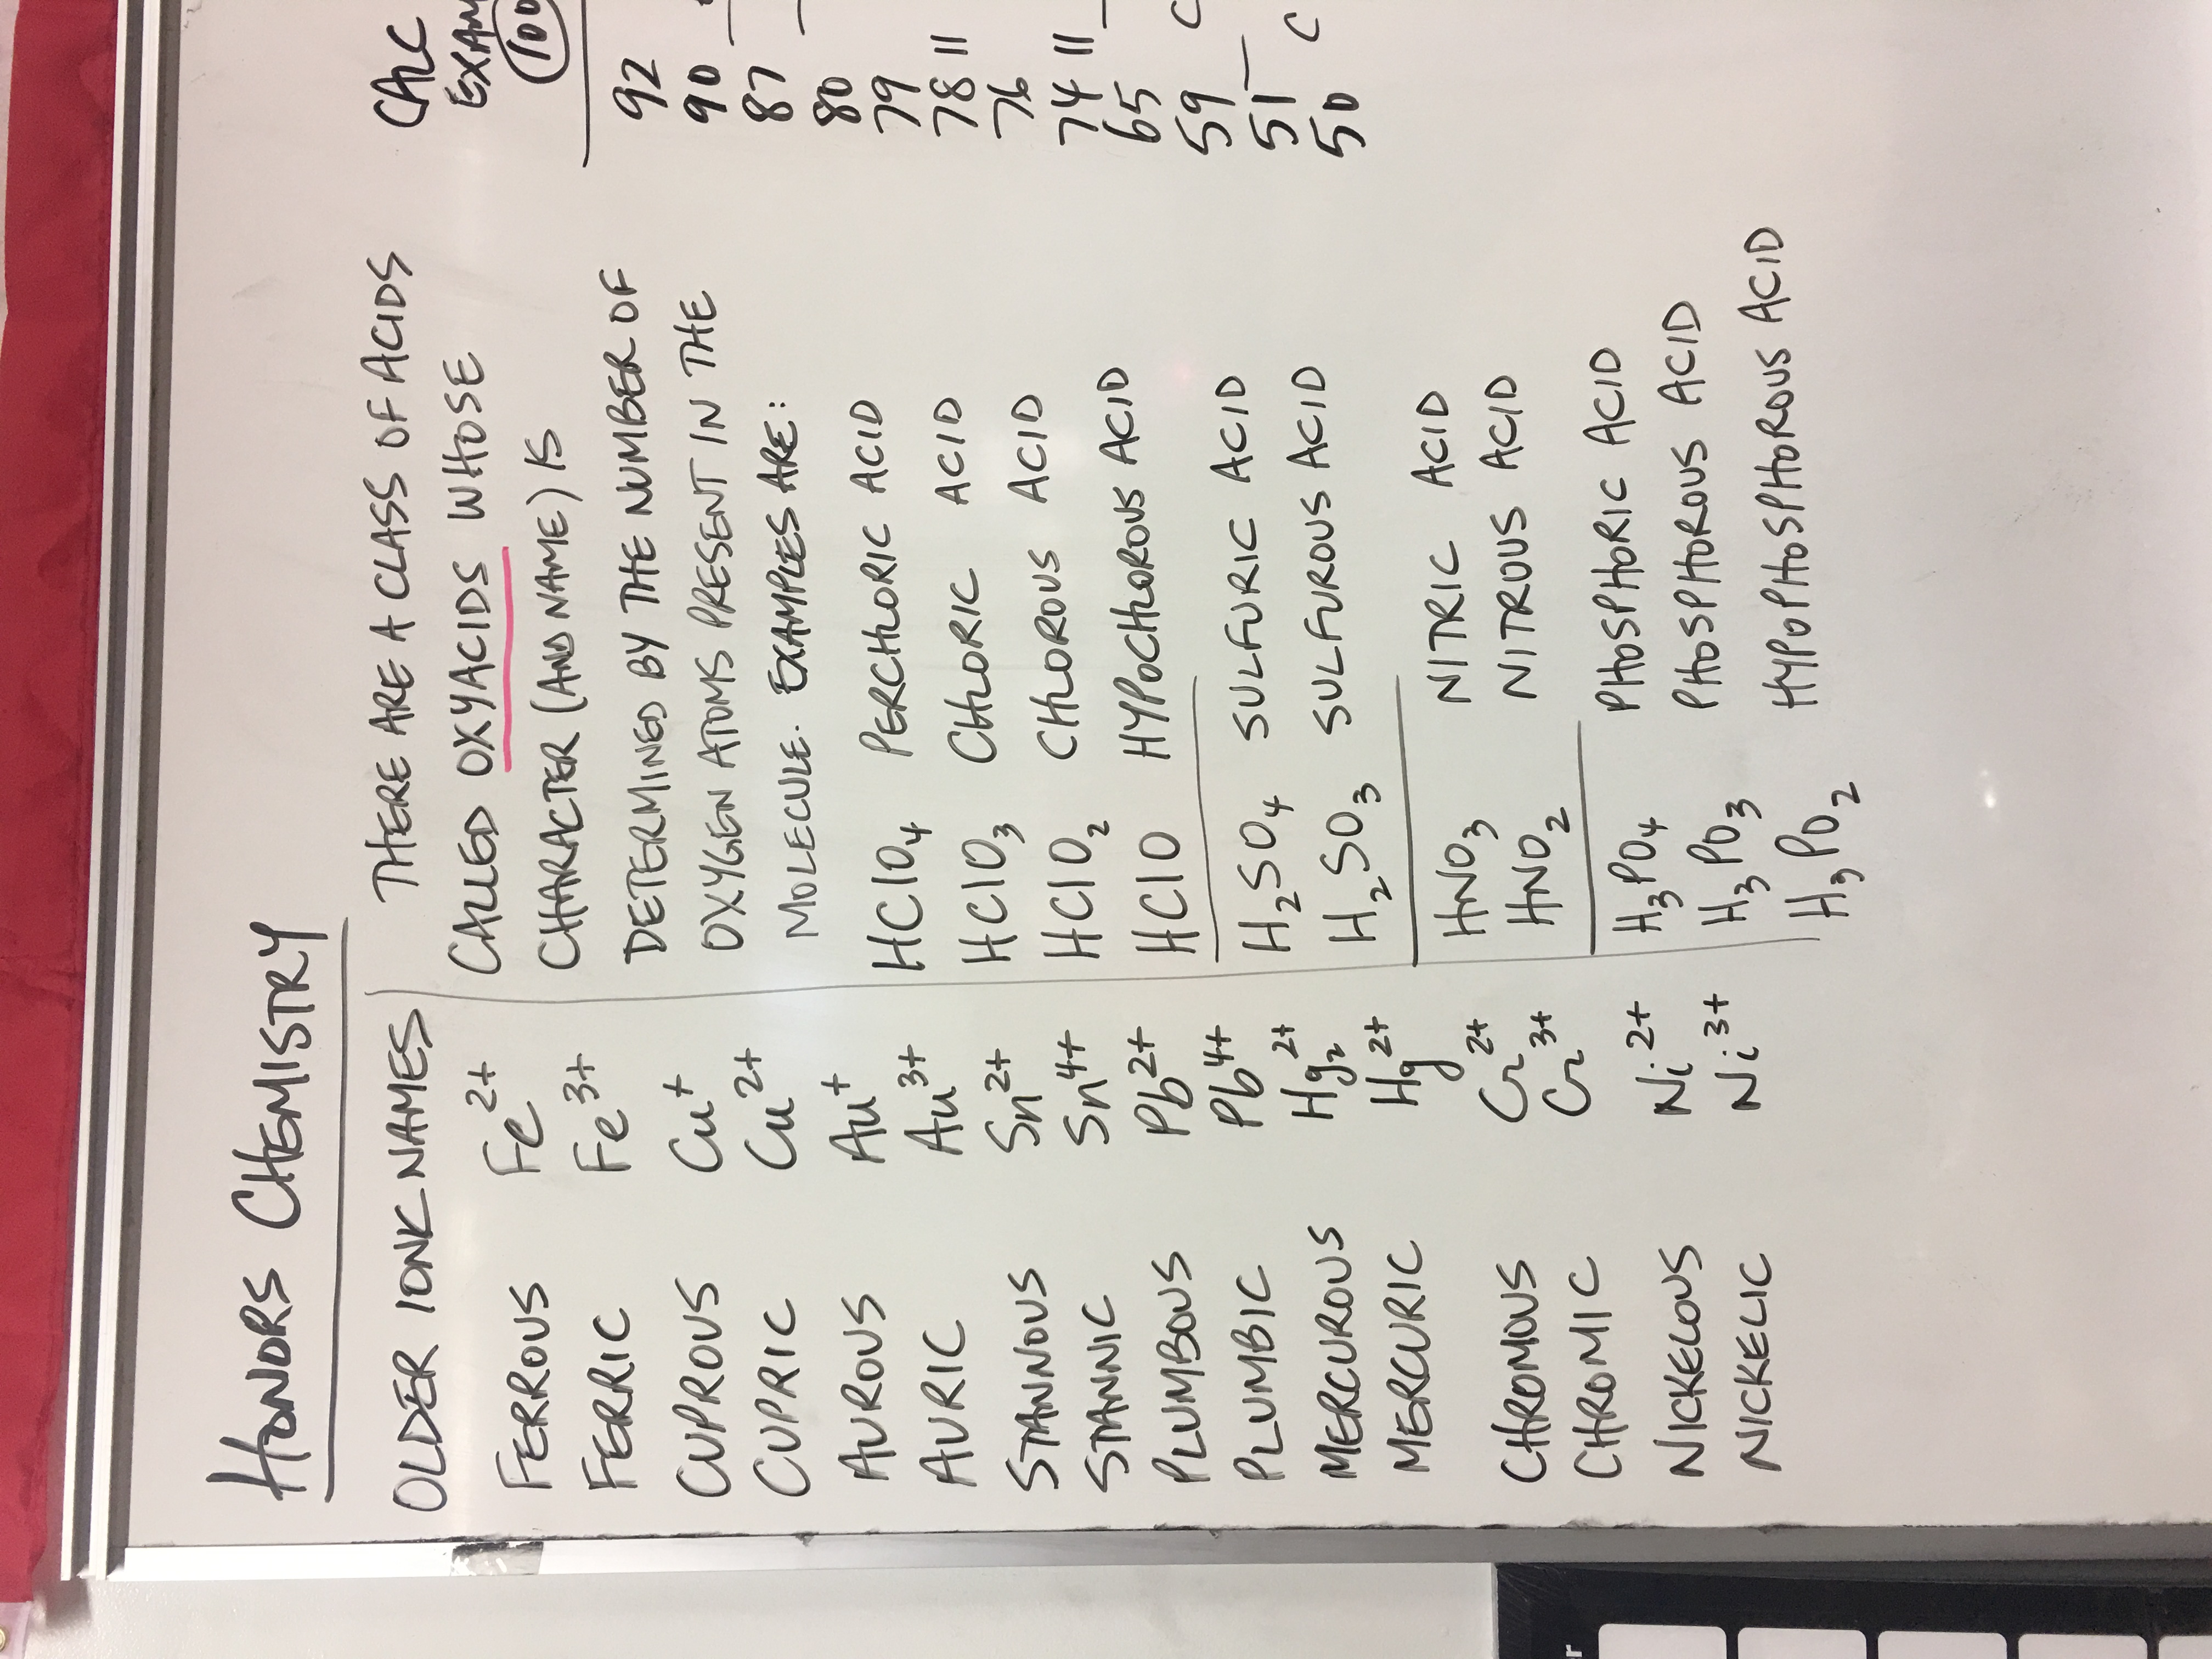 HONORS CHEMISTRY
OLDER IONIC NAMES
FERROUS Fe2+
FERRIC Fe3+
CUPROUS Cu+
CUPRIC Cu2+
AUROUS Au+
AURIC Au3+
STANNOUS Sn2+
STANNIC Sn4+
PLUMBOUS Pb2+
PLUMBIC Pb4+
MERCUROUS Hg2 2+
MERCURIC Hg2+
CHROMOUS Cr2+
CHROMIC Cr3+
NICKELOUS Ni2+
NICKELIC Ni3+
THERE ARE A CLASS OF ACIDS
CALLED OXYACIDS WHOSE
CHARACTER (AND NAME) IS
DETERMINED BY THE NUMBER OF
OXYGEN ATOMS PRESENT IN THE
MOLECULE. EXAMPLES ARE:
HClO4 PERCHLORIC ACID
HClO3 CHLORIC ACID
HClO2 CHLOROUS ACID
HClO HYPOCHLOROUS ACID
H2SO4 SULFURIC ACID
H2SO3 SULFUROUS ACID
HNO3 NITRIC ACID
HNO2 NITROUS ACID
H3PO4 PHOSPHORIC ACID
H3PO3 PHOSPHOROUS ACID
H3PO2 HYPOPHOSPHOROUS ACID
CALC
EXAM
100
92
90
87
80
79
78 ||
76
74 ||
65
59 C
51
50 C